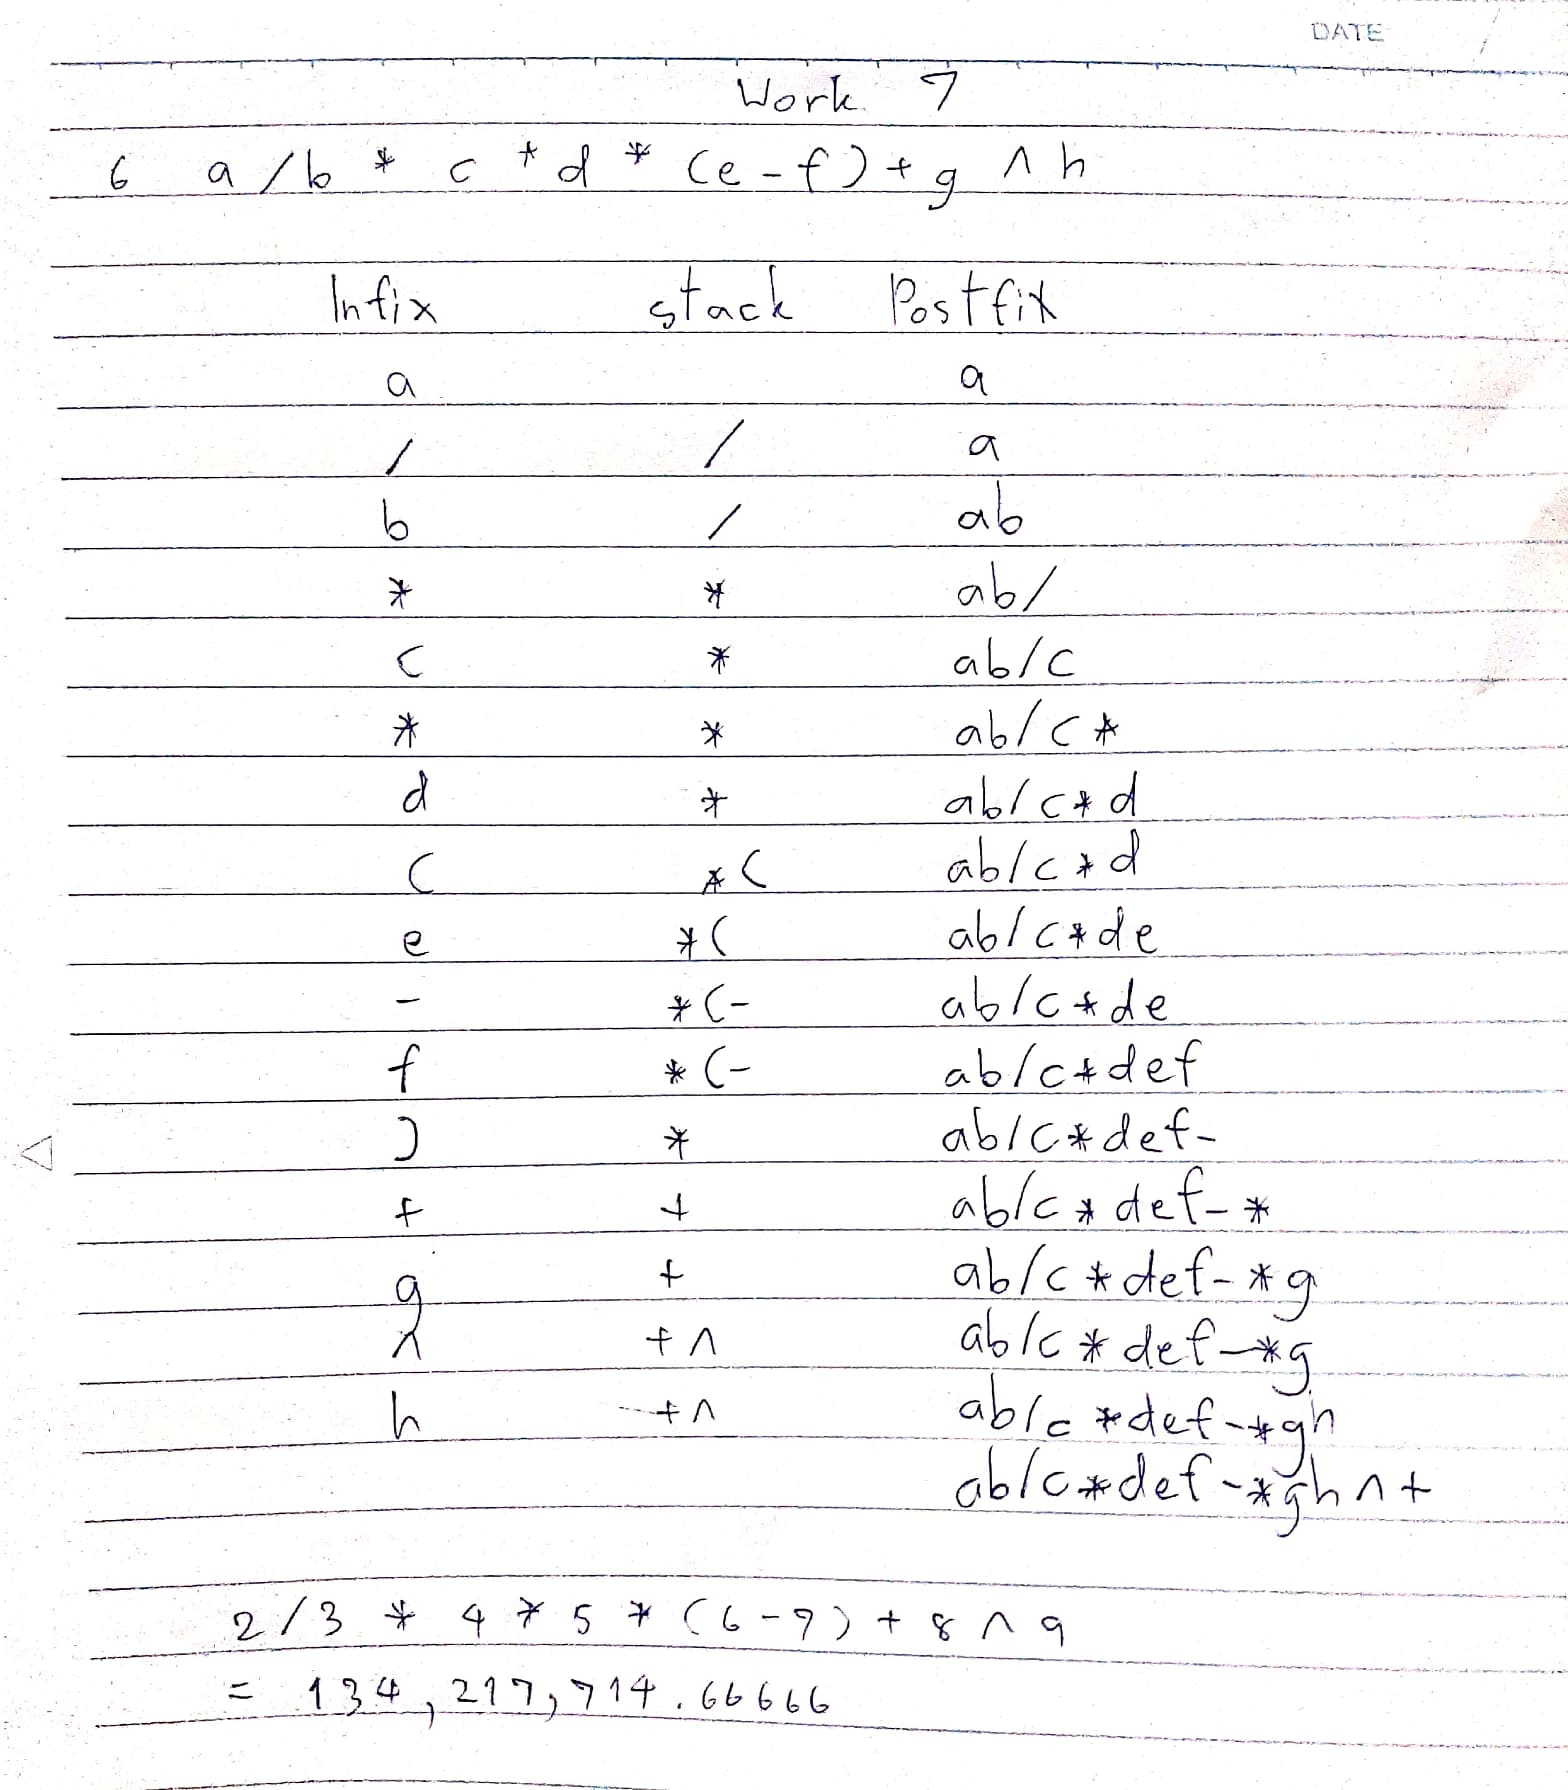 DATE
Work 7
6 a / b * c * d * (e - f) + g ^ h
Infix stack Postfix
a a
/ / a
b / ab
* * ab/
c * ab/c
* * ab/c*
d * ab/c*d
( *( ab/c*d
e *( ab/c*de
- *(- ab/c*de
f *(- ab/c*def
) * ab/c*def-
+ + ab/c*def-*
g + ab/c*def-*g
^ +^ ab/c*def-*g
h +^ ab/c*def-*gh
ab/c*def-*gh^+
2/3 * 4 * 5 * (6-7) + 8 ^ 9
= 134,217,714.66666